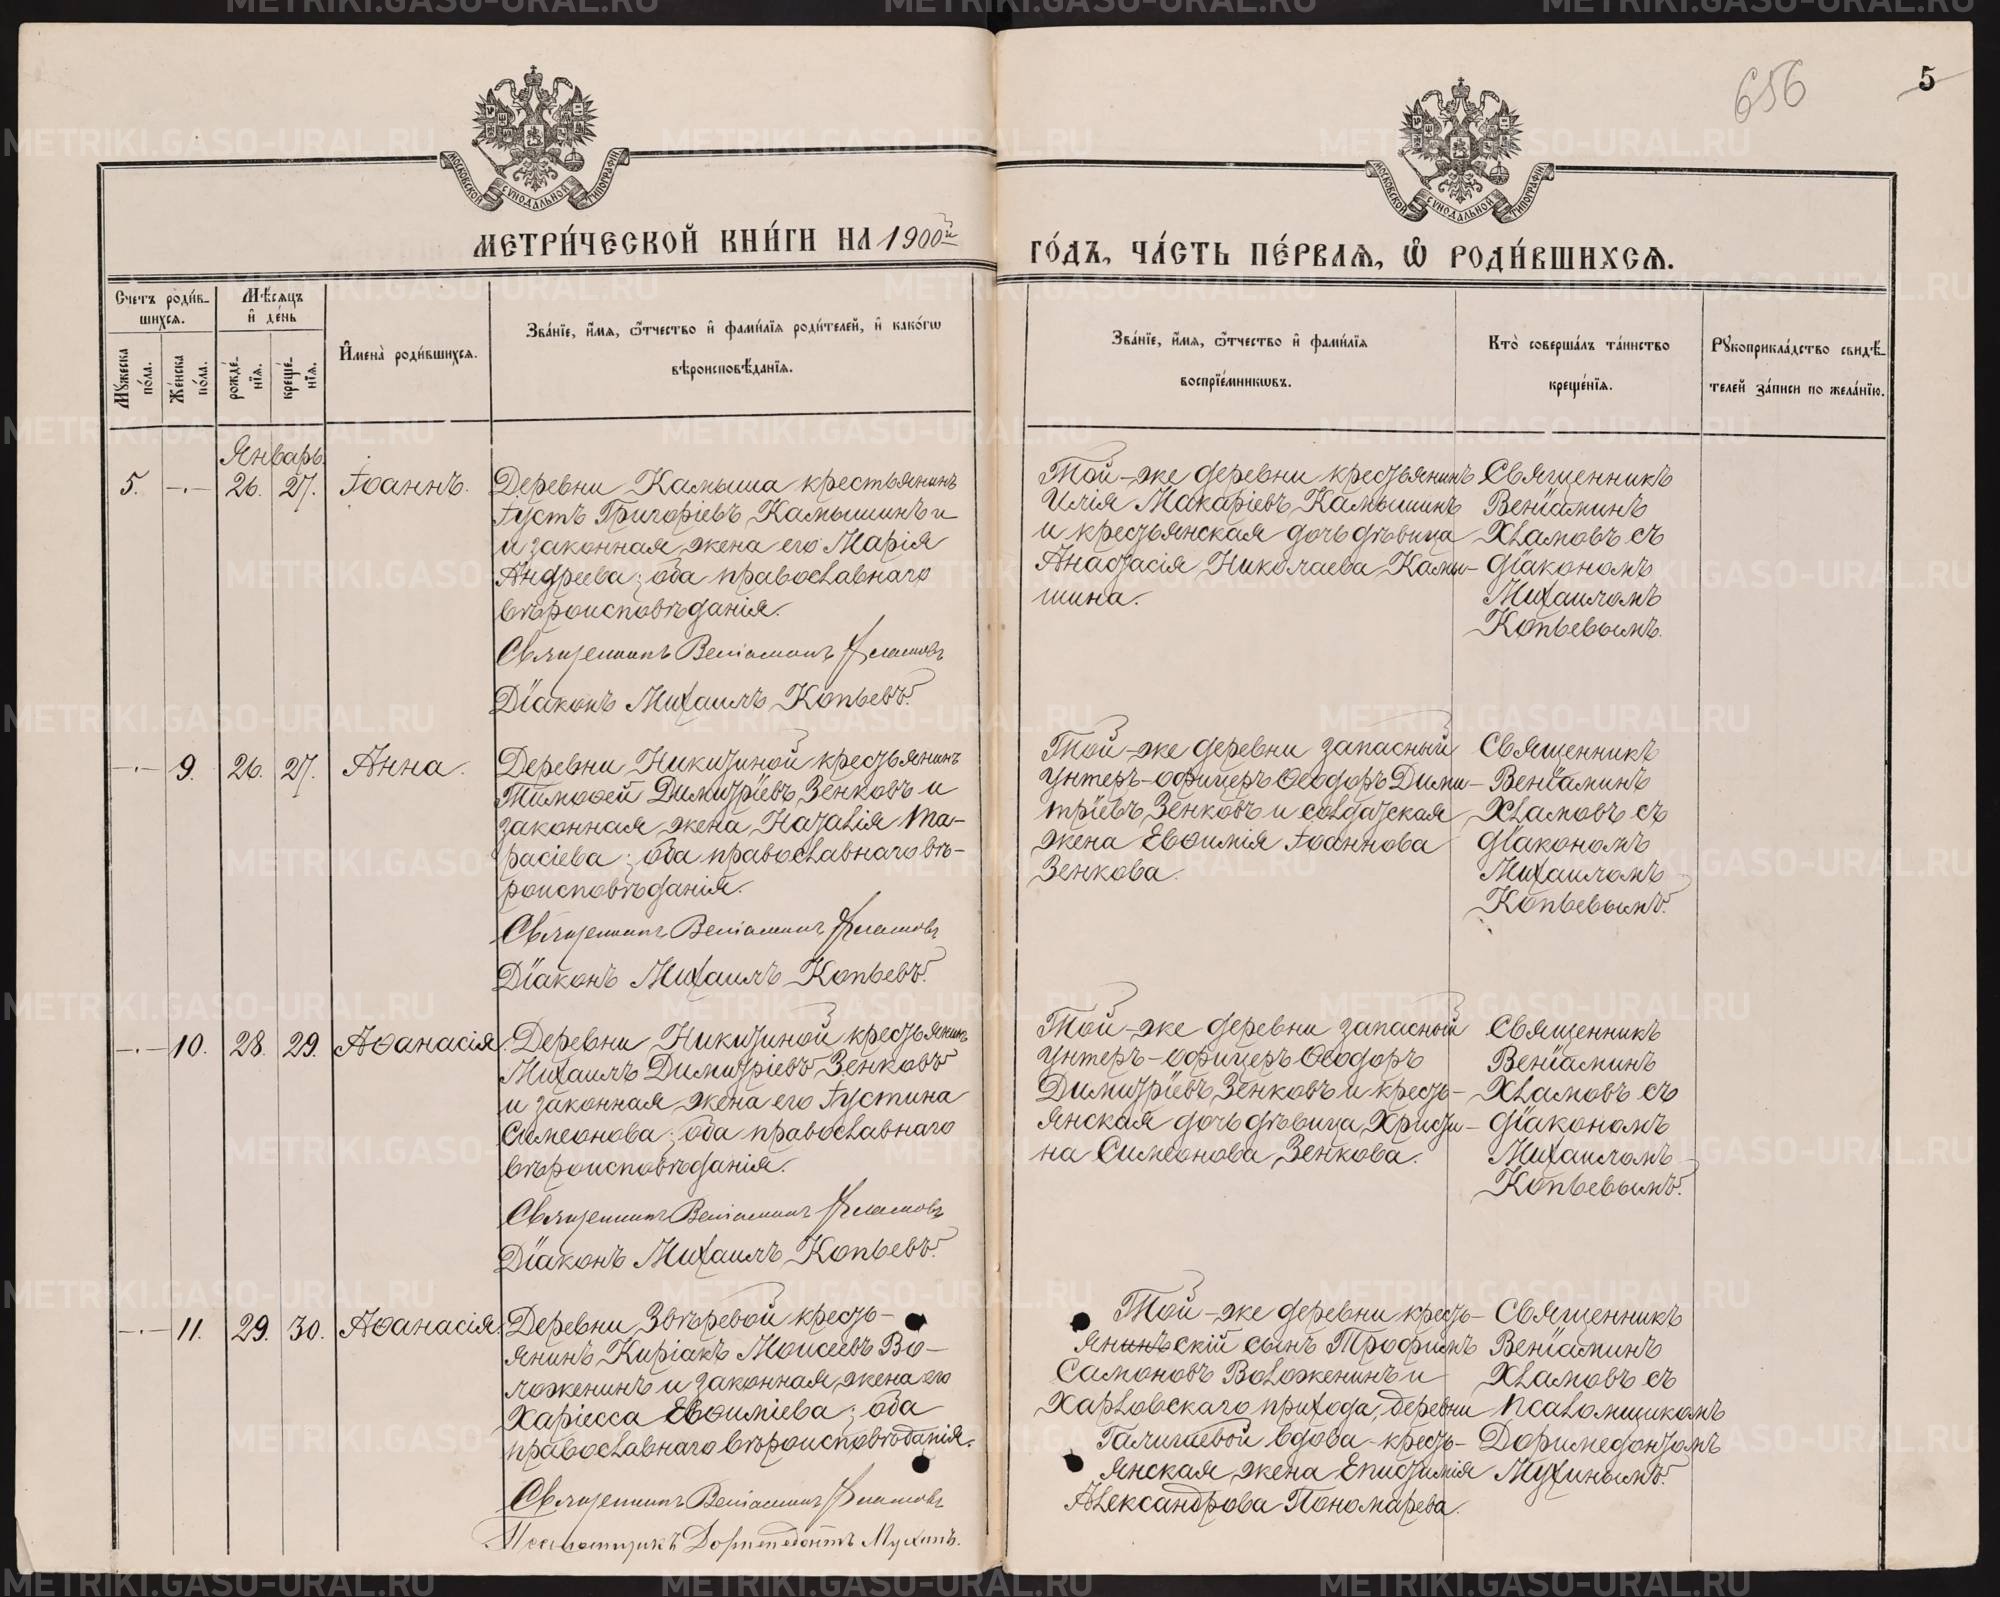 656
5
МОСКОВСКОЙ СѴНОДАЛЬНОЙ ТИПОГРАФІИ
МОСКОВСКОЙ СѴНОДАЛЬНОЙ ТИПОГРАФІИ
МЕТРИ́ЧЕСКОЙ КНИ́ГИ НА 1900й
ГО́ДЪ, ЧА́СТЬ ПЕ́РВАѦ, Ѡ҆ РОДИ́ВШИХСѦ.
Счетъ роди́в-
шихся.
Мѣ́сяцъ
и҆ де́нь
И҆мена̀ роди́вшихся.
Зва́нїе, и҆́мя, ѻ҆́тчество и҆ фами́лїя роди́телей, и҆ како́гѡ
вѣроисповѣ́данїя.
Мꙋ́жеска по́ла.
Же́нска по́ла.
рожде́нїя.
креще́нїя.
Зва́нїе, и҆́мя, ѻ҆́тчество и҆ фами́лїя
воспрїе́мникѡвъ.
Кто̀ соверша́лъ та́инство
креще́нїя.
Рꙋкоприкла́дство свидѣ́-
телей за́писи по жела́нїю.
Январь.
5. -·- 26. 27. Іоаннъ.
Деревни Камыша крестьянинъ
Іустъ Григоріевъ Камышинъ и
и законная жена его Марія
Андреева; оба православнаго
вѣроисповѣданія.
Священникъ Веніаминъ Хламовъ
Діаконъ Михаилъ Копьевъ.
Той-же деревни крестьянинъ
Илія Макаріевъ Камышинъ
и крестьянская дочь дѣвица
Анастасія Николаева Камы-
шина.
Священникъ
Веніаминъ
Хламовъ съ
діакономъ
Михаиломъ
Копьевымъ.
-·- 9. 26. 27. Анна.
Деревни Никитиной крестьянинъ
Тимоѳей Димитріевъ Зенковъ и
законная жена Наталія Та-
расіева; оба православнаго вѣ-
роисповѣданія.
Священникъ Веніаминъ Хламовъ
Діаконъ Михаилъ Копьевъ.
Той-же деревни запасный
унтеръ-офицеръ Ѳеодоръ Дими-
тріевъ Зенковъ и солдатская
жена Евѳимія Іоаннова
Зенкова.
Священникъ
Веніаминъ
Хламовъ съ
діакономъ
Михаиломъ
Копьевымъ.
-·- 10. 28. 29. Аѳанасія.
Деревни Никитиной крестьянинъ
Михаилъ Димитріевъ Зенковъ
и законная жена его Іустина
Симеонова; оба православнаго
вѣроисповѣданія.
Священникъ Веніаминъ Хламовъ
Діаконъ Михаилъ Копьевъ.
Той-же деревни запасный
унтеръ-офицеръ Ѳеодоръ
Димитріевъ Зенковъ и кресть-
янская дочь дѣвица Христи-
на Симеонова Зенкова.
Священникъ
Веніаминъ
Хламовъ съ
діакономъ
Михаиломъ
Копьевымъ.
-·- 11. 29. 30. Аѳанасія.
Деревни Звѣревой кресть-
янинъ Киріакъ Моисеевъ Во-
ложенинъ и законная жена его
Хариесса Евѳиміева; оба
православнаго вѣроисповѣданія.
Священникъ Веніаминъ Хламовъ
Псаломщикъ Доримедонтъ Мухинъ.
Той-же деревни кресть-
янинъскій сынъ Трофимъ
Самоновъ Воложенинъ и
Харловскаго прихода, деревни
Галишевой вдова-кресть-
янская жена Епистимія
Александрова Пономарева.
Священникъ
Веніаминъ
Хламовъ съ
псаломщикомъ
Доримедонтомъ
Мухинымъ.
METRIKI.GASO-URAL.RU